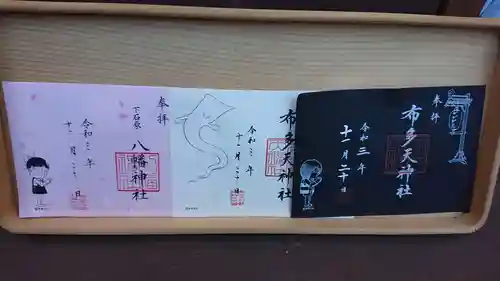 奉拝
布多天神社
令和三年
十一月二十日
布多天神社
令和三年
十一月二十日
奉拝
下石原
八幡神社
令和三年
十一月二十日